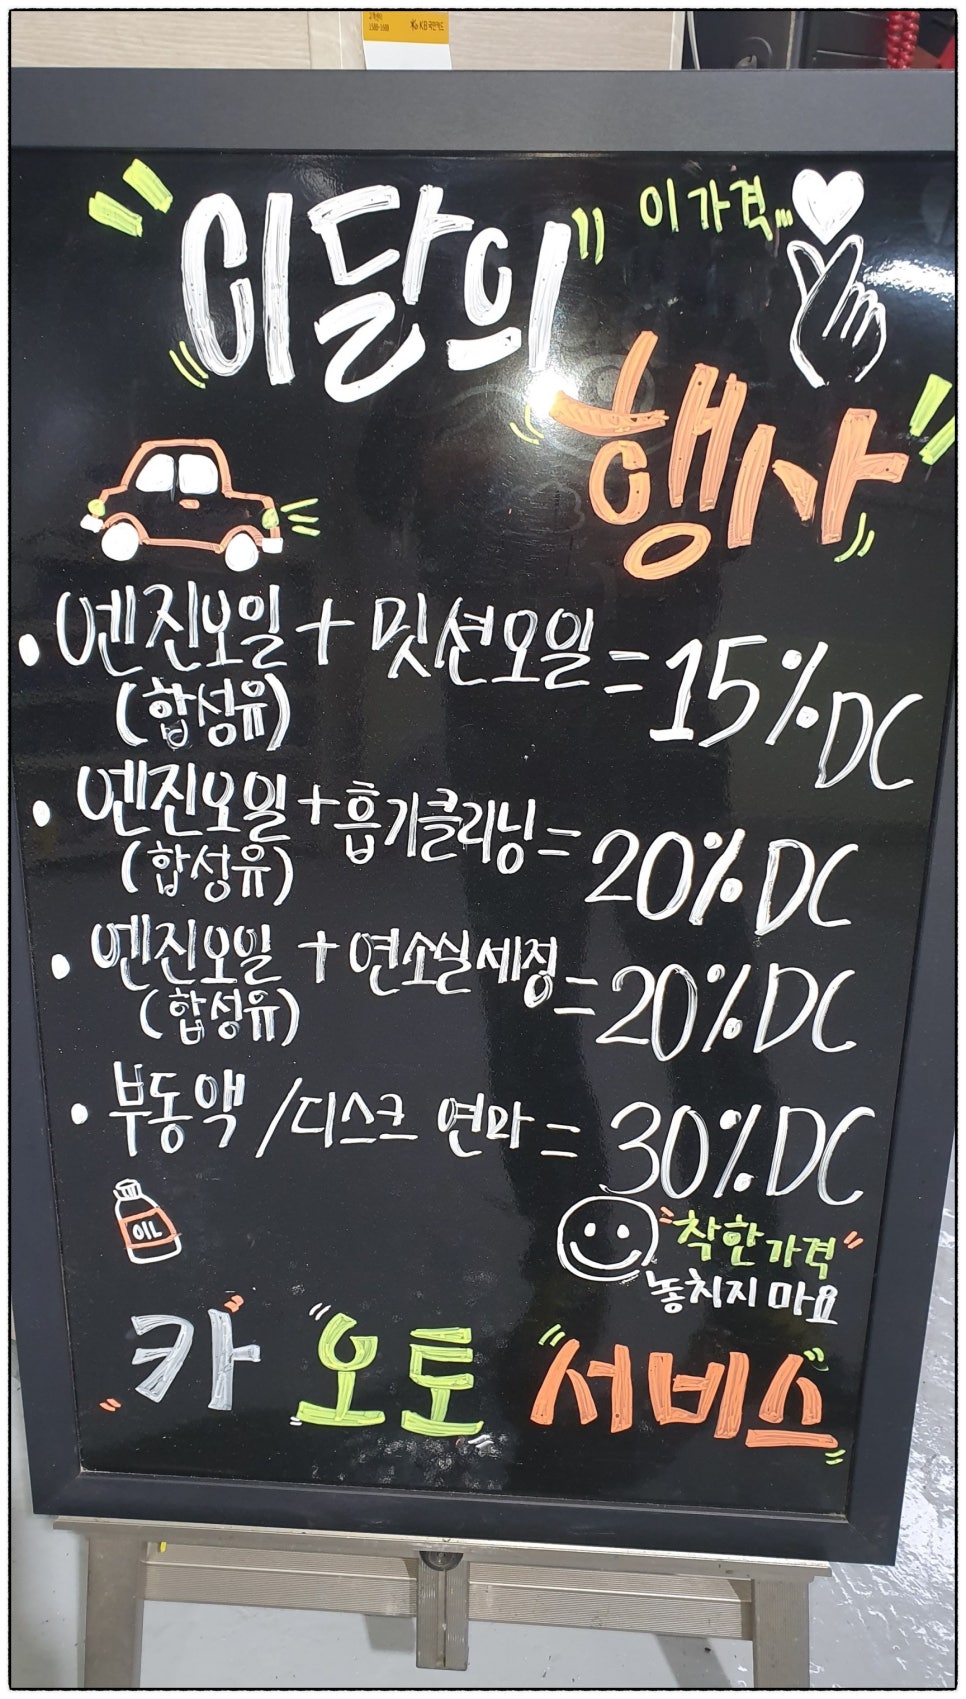 고객센터
1588-1688
KB국민카드
"이달의"
이 가격...
행사
• 엔진오일 + 밋션오일 = 15% DC
(합성유)
• 엔진오일 + 흡기클리닝 = 20% DC
(합성유)
• 엔진오일 + 연소실세정 = 20% DC
(합성유)
• 부동액 / 디스크 연마 = 30% DC
OIL
"착한가격"
놓치지 마요
카 "오토 "서비스"